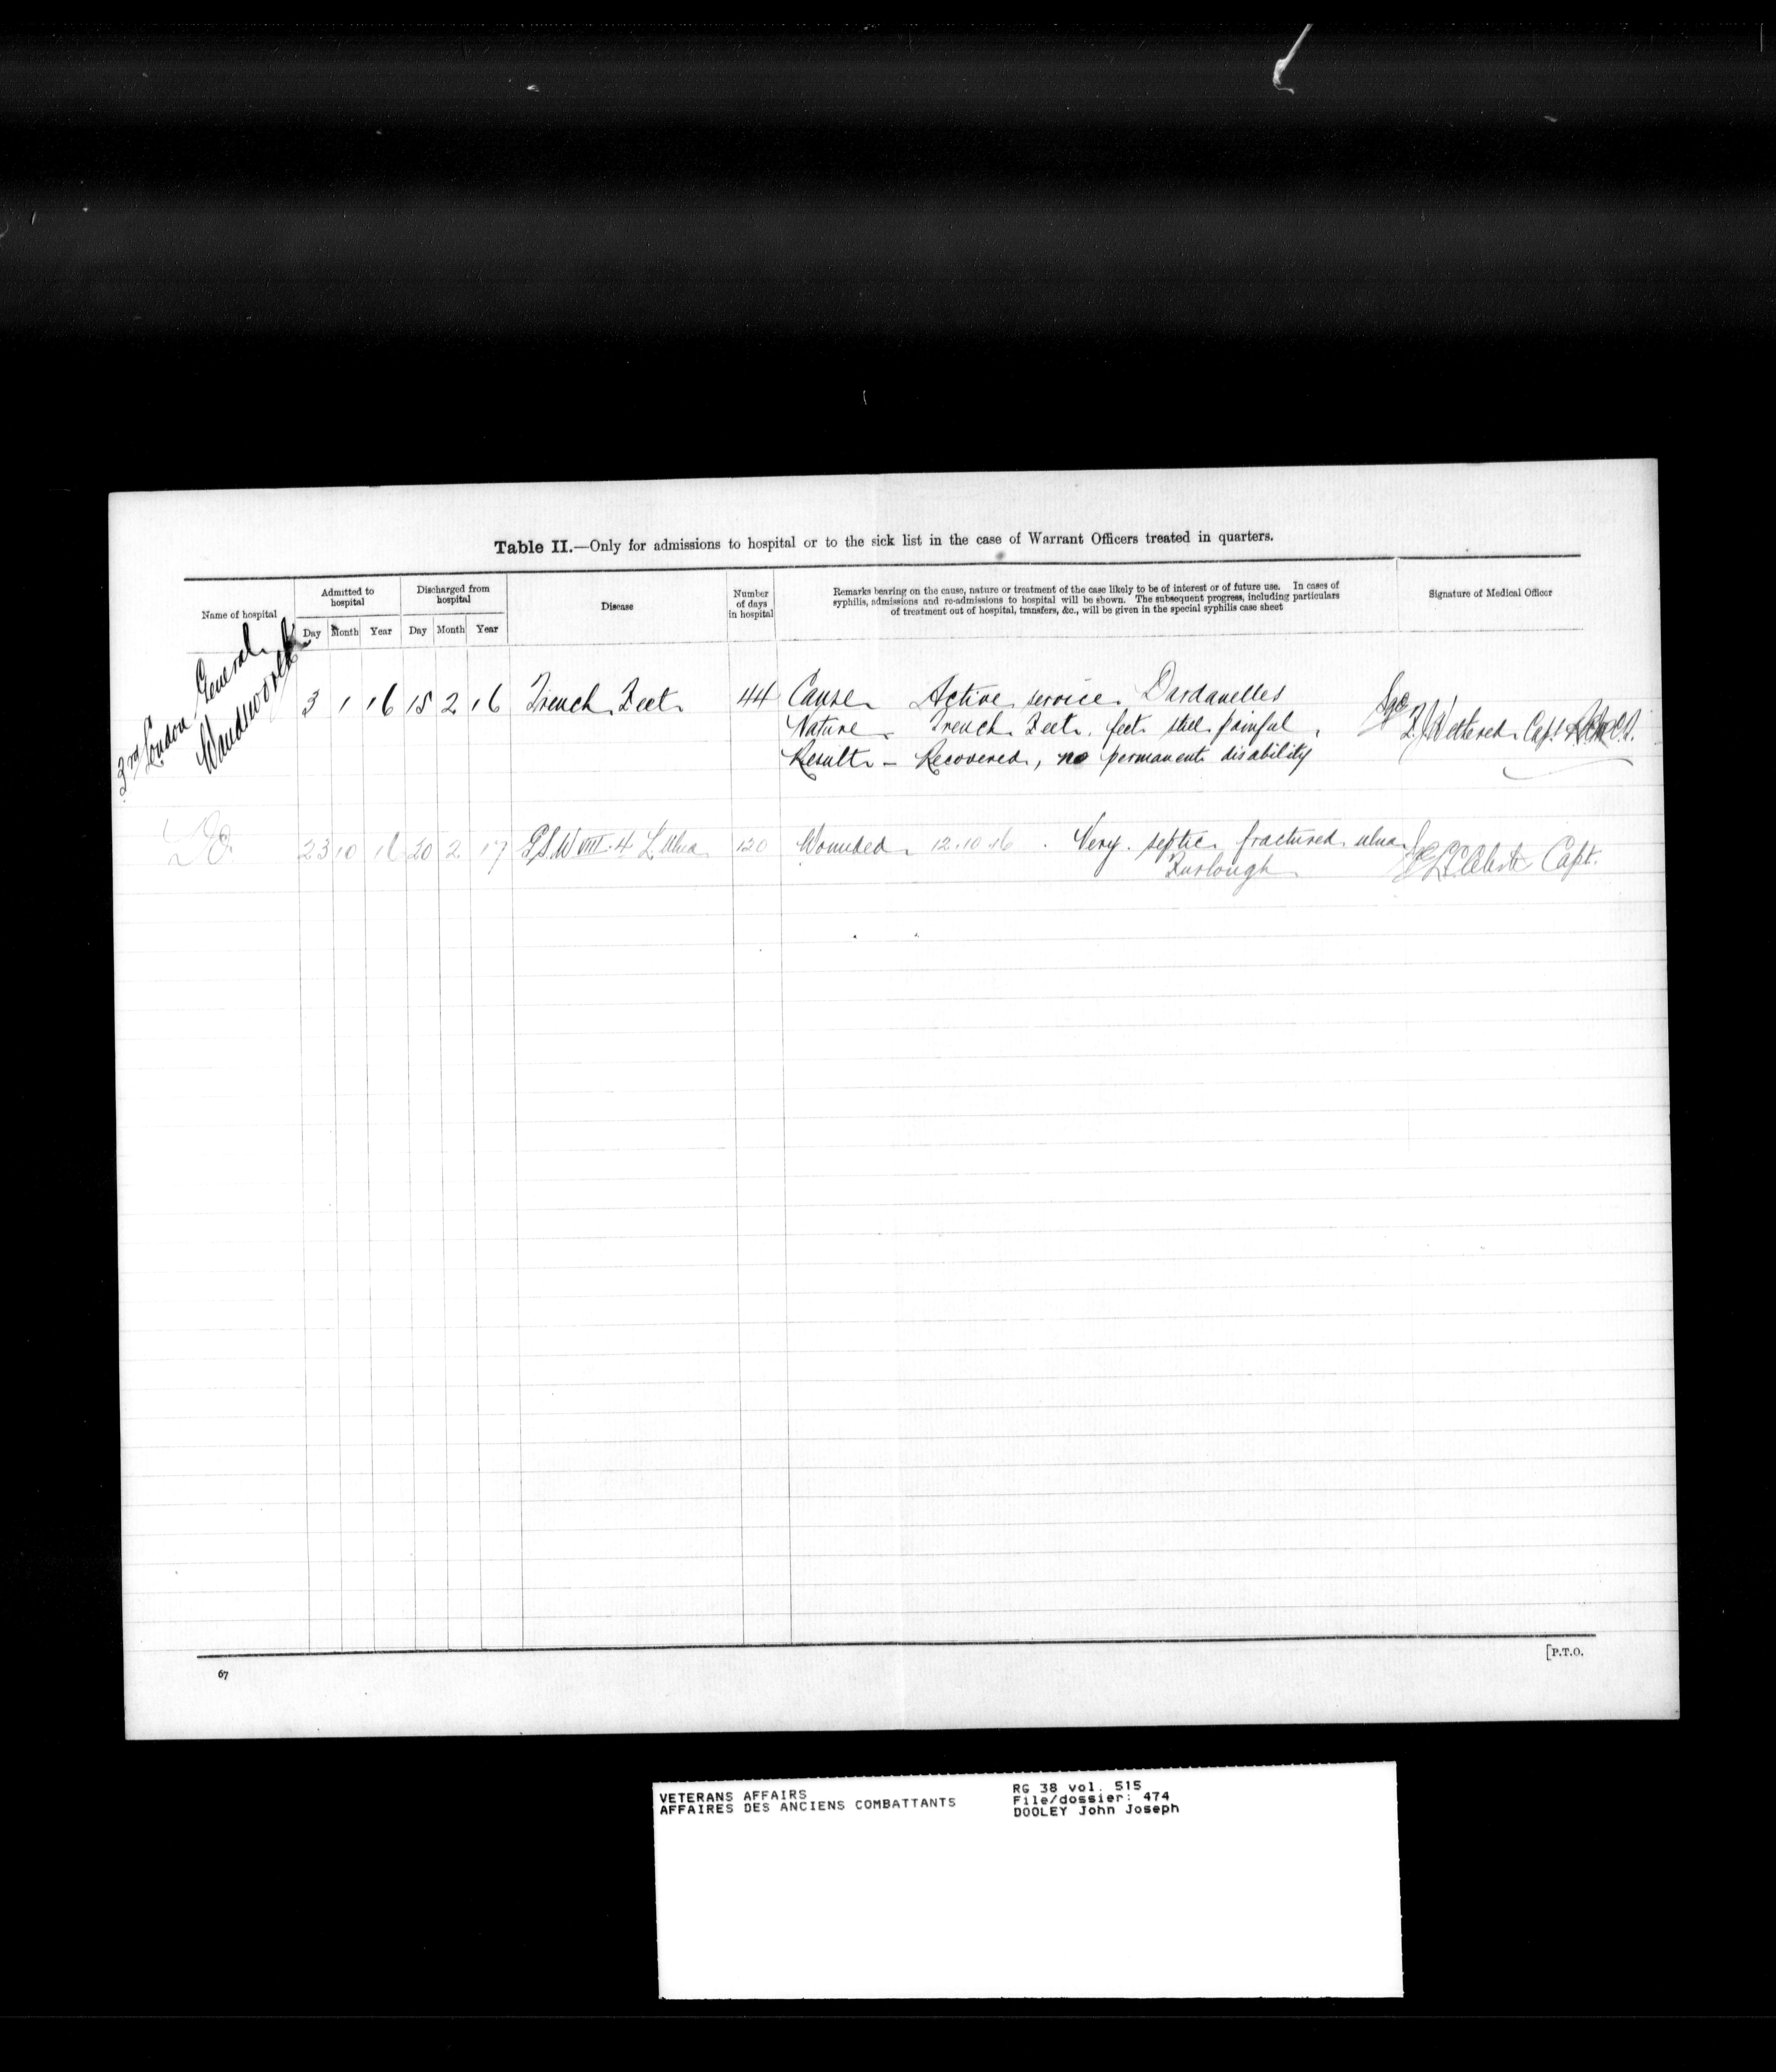 Table II.—Only for admissions to hospital or to the sick list in the case of Warrant Officers treated in quarters.
Name of hospital
Admitted to hospital
Discharged from hospital
Disease
Number of days in hospital
Remarks bearing on the cause, nature or treatment of the case likely to be of interest or of future use. In cases of
syphilis, admissions and re-admissions to hospital will be shown. The subsequent progress, including particulars
of treatment out of hospital, transfers, &c., will be given in the special syphilis case sheet
Signature of Medical Officer
Day Month Year Day Month Year
3rd London General
Wandsworth
3 1 16 15 2 16 Trench Feet 44 Cause Active service Dardanelles
Nature Trench Feet. feet still painful. Wethered Capt
Result - Recovered, no permanent disability
Do. 23 10 16 20 2 17 G.S.W VIII.4 L Ulna 120 Wounded 12.10.16. Very septic fractured ulna
Furlough Capt.
67
[P.T.O.
VETERANS AFFAIRS
AFFAIRES DES ANCIENS COMBATTANTS
RG 38 vol. 515
File/dossier: 474
DOOLEY John Joseph